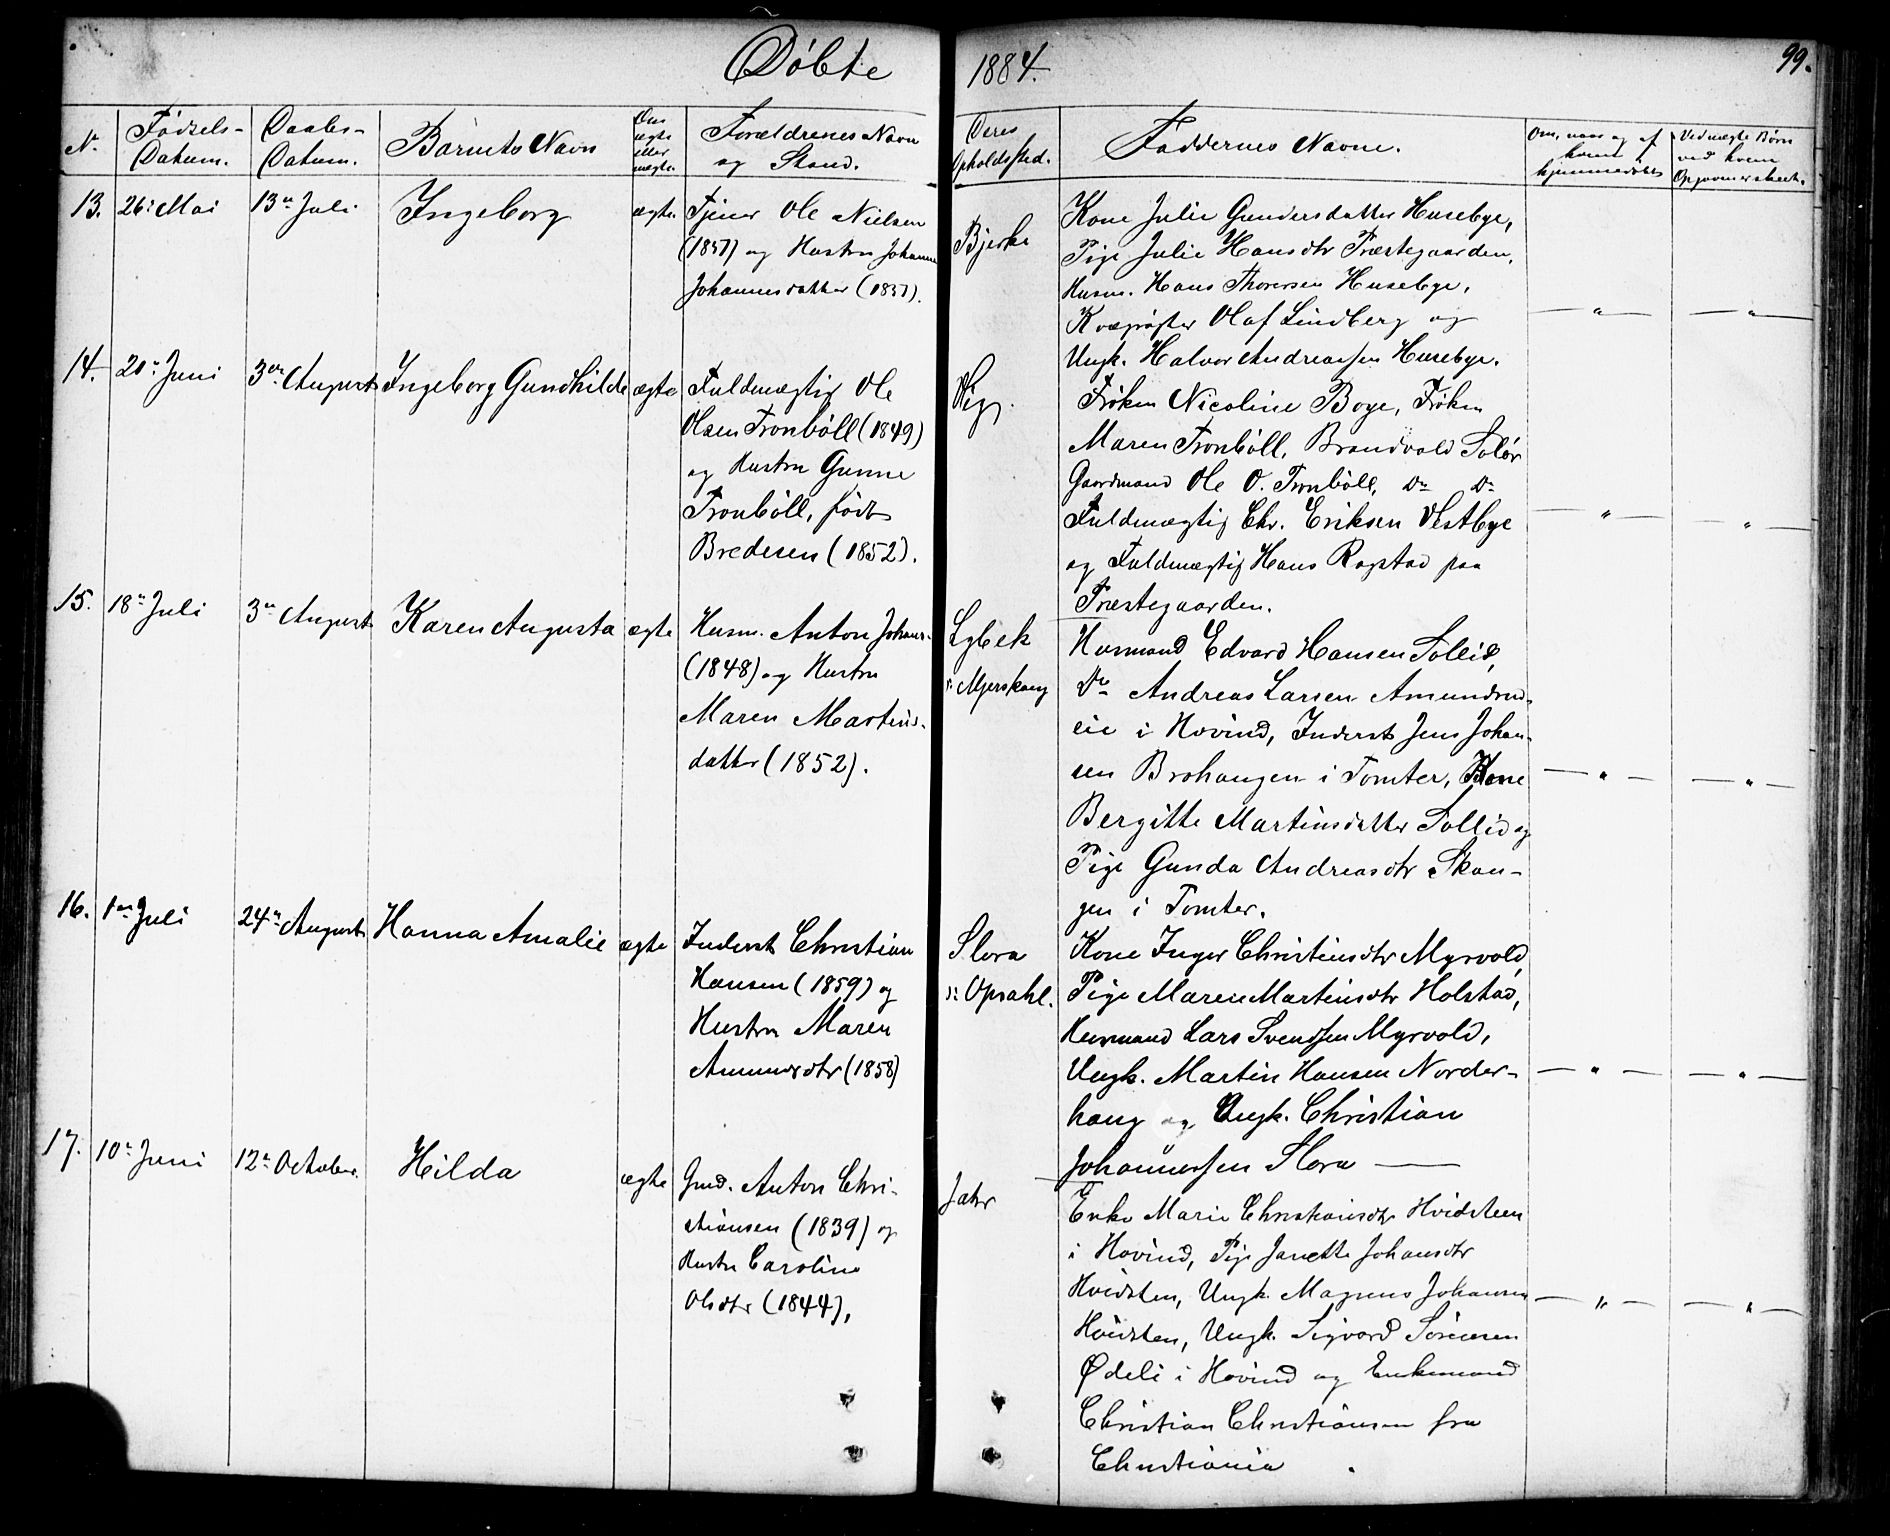 Døbte 1884. 99.
N. Fødsels-Datum. Daabs-Datum. Barnets Navn Om ægte eller uægte. Forældrenes Navn og Stand. Deres Opholdssted. Faddernes Navne. Om, naar og af hvem hjemmedøbt Ved uægte Børn ved hvem
13. 26. Mai 13de Juli Ingeborg ægte
Tjener Ole Nielsen
(1857) og Hustru Johanne
Johannesdatter (1857).
Bjerke
Kone Julie Gundersdatter Husebye,
Pige Julie Hansdtr Præstegaarden,
Husm. Hans Thoresen Husebye,
Olaf Lindberg og
Ungk. Halvor Andreassen Husebye.
— " — — " —
14. 20de Juni 3die August Ingeborg Gundhilde ægte
Fuldmægtig Ole
Olsen Tronbøll (1849)
og Hustru Gunne
Tronbøll, født
Bredesen (1852).
Vig.
Frøken Nicoline Boye, Frøken
Maren Tronbøll, Brandvold Solør
Gaardmand Ole O. Tronbøll, Do Do
Fuldmægtig Chr. Eriksen Vestbye
og Fuldmægtig Hans Rogstad paa
Præstegaarden.
— " — — " —
15. 18de Juli 3die August Karen Augusta ægte
Husm. Anton Johans.
(1848) og Hustru
Maren Martins-
datter (1852).
Lybek
Husmand Edvard Hansen Sollid,
Do Andreas Larsen Amundrud-
eie i Hovind, Inderst Jens Johan-
sen Brohaugen i Tomter, Kone
Bergitte Martinsdatter Sollid og
Pige Gunda Andreasdtr Skau-
gen i Tomter.
— " — — " —
16. 1ste Juli 24de August Hanna Amalie ægte
Inderst Christian
Hansen (1859) og
Hustru Maren
Amundsdtr (1858)
Slora
Opsahl.
Kone Inger Christinsdtr Myrvold,
Pige Maren Martinsdtr Holstad,
Husmand Lars Svendsen Myrvold,
Ungk. Martin Hansen Norder-
haug og Ungk. Christian
Johannessen Slora —
— " — — " —
17. 10de Juni 12te October. Hilda ægte
Gmd. Anton Chri-
stiansen (1839) og
Hustru Caroline
Olsdtr (1844),
Jahr
Enke Marie Christiansdtr Hvidsteen
i Hovind, Pige Janette Johansdtr
Hvidsten, Ungk. Magnus Johansen
Hvidsten, Ungk. Sigvard Sørensen
Ødeli i Hovind og Enkemand
Christian Christiansen fra
Christiania.
— " — — " —